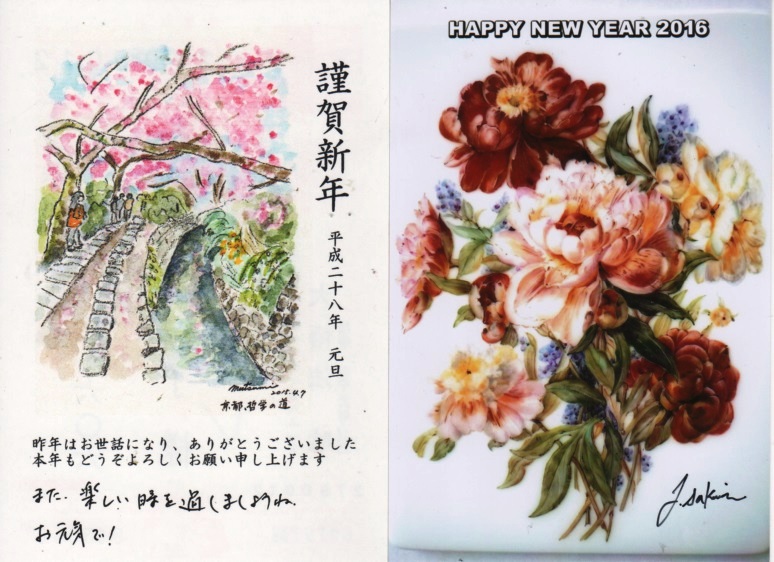 謹賀新年
平成二十八年 元旦
2015.4.7
京都、哲学の道
昨年はお世話になり、ありがとうございました
本年もどうぞよろしくお願い申し上げます
また、楽しい時を過しましょうね、
お元気で!
HAPPY NEW YEAR 2016